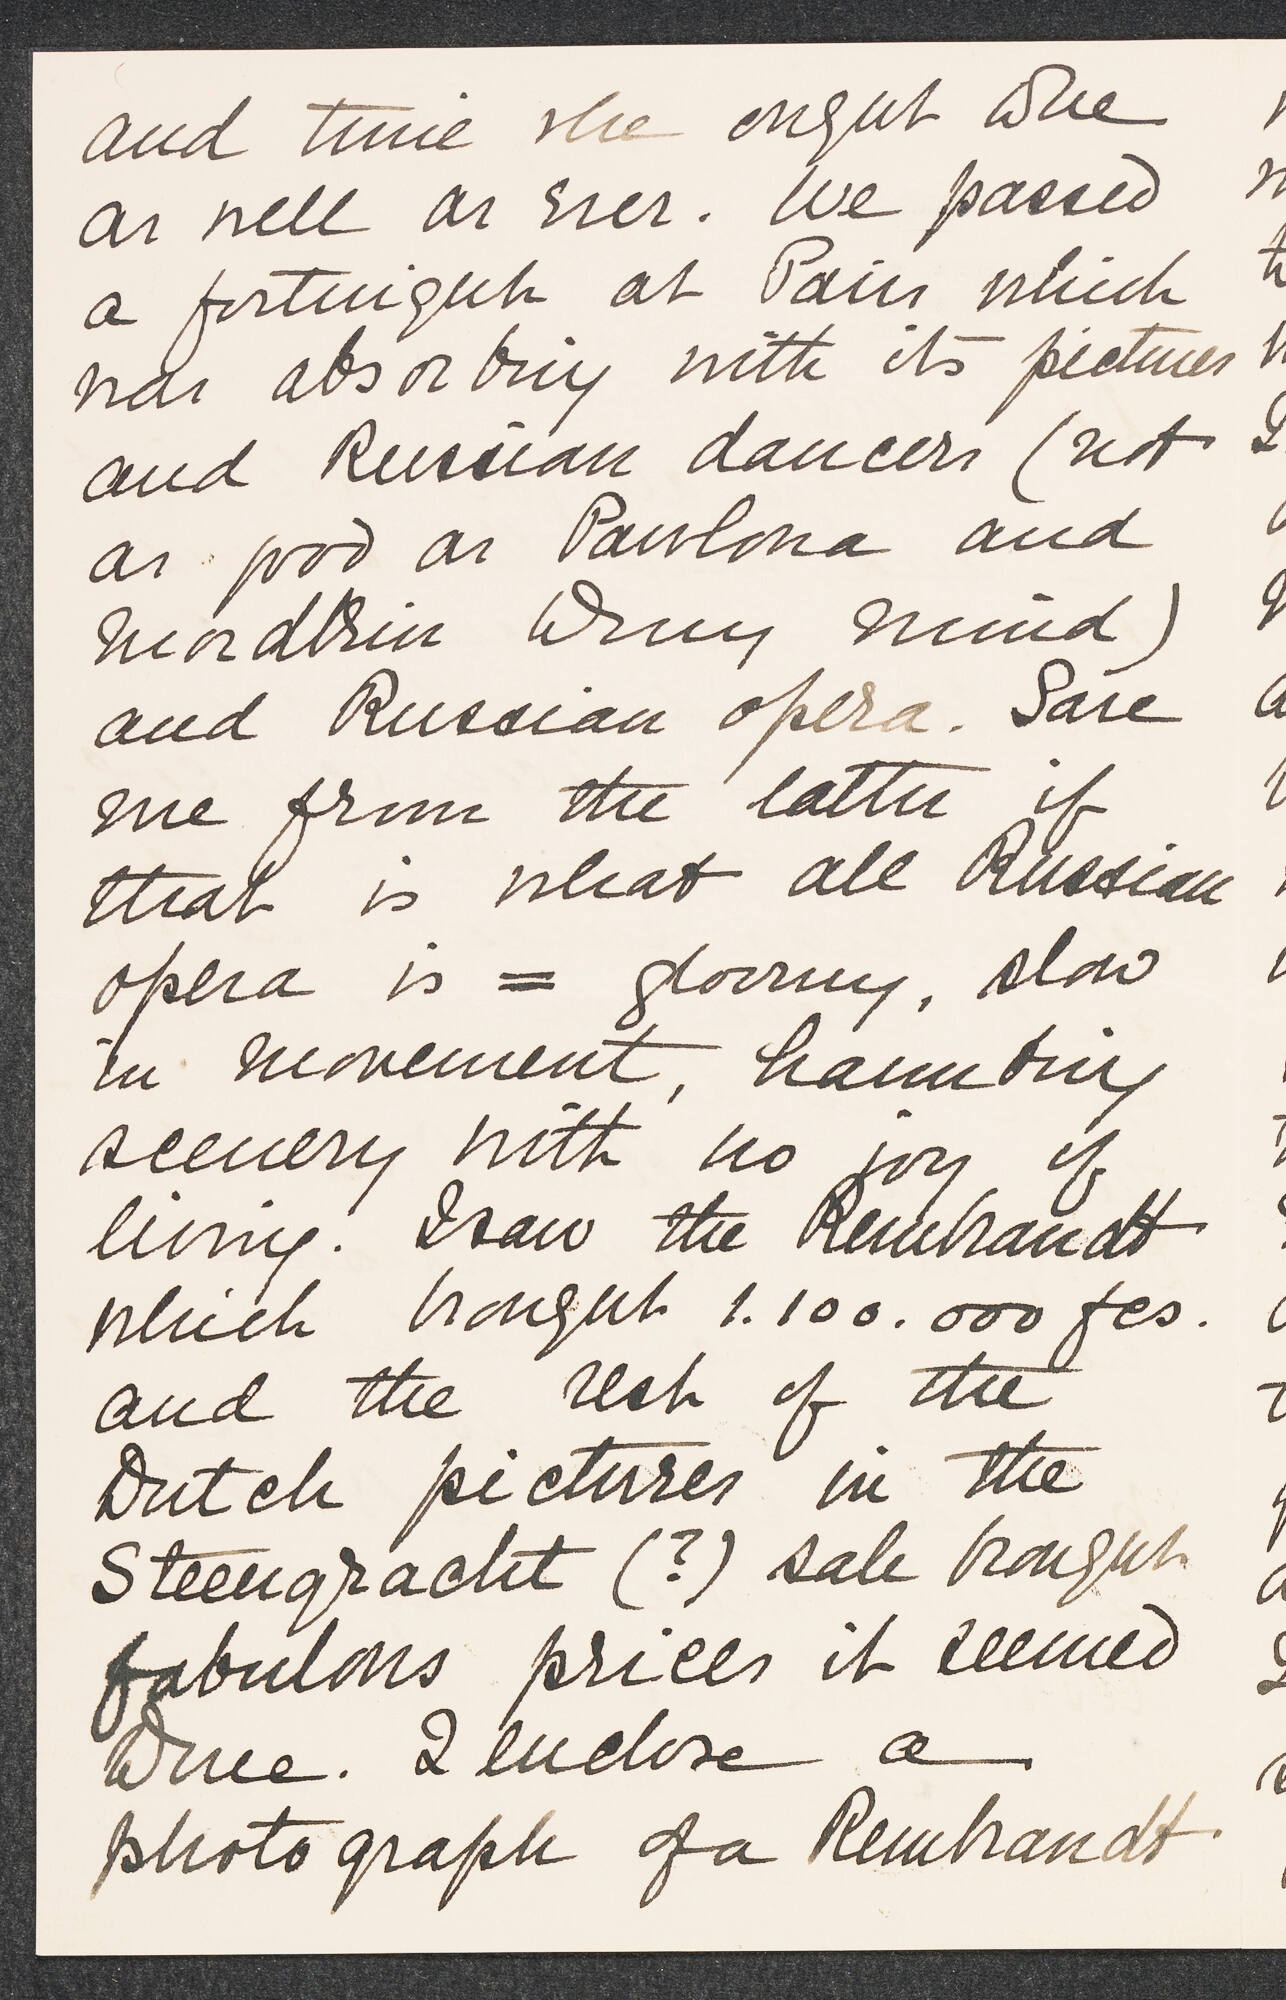 and time she ought to be
as well as ever. We passed
a fortnight at Paris which
was absorbing with its pictures
and Russian dancers (not
as good as Pavlova and
Mordkin to my mind)
and Russian opera. Save
me from the latter if
that is what all Russian
opera is = gloomy, slow
in movement, haunting
scenery with no joy of
living. I saw the Rembrandt
which brought 1.100.000 fcs.
and the rest of the
Dutch pictures in the
Steengracht (?) sale brought
fabulous prices it seemed
to me. I enclose a
photograph of a Rembrandt